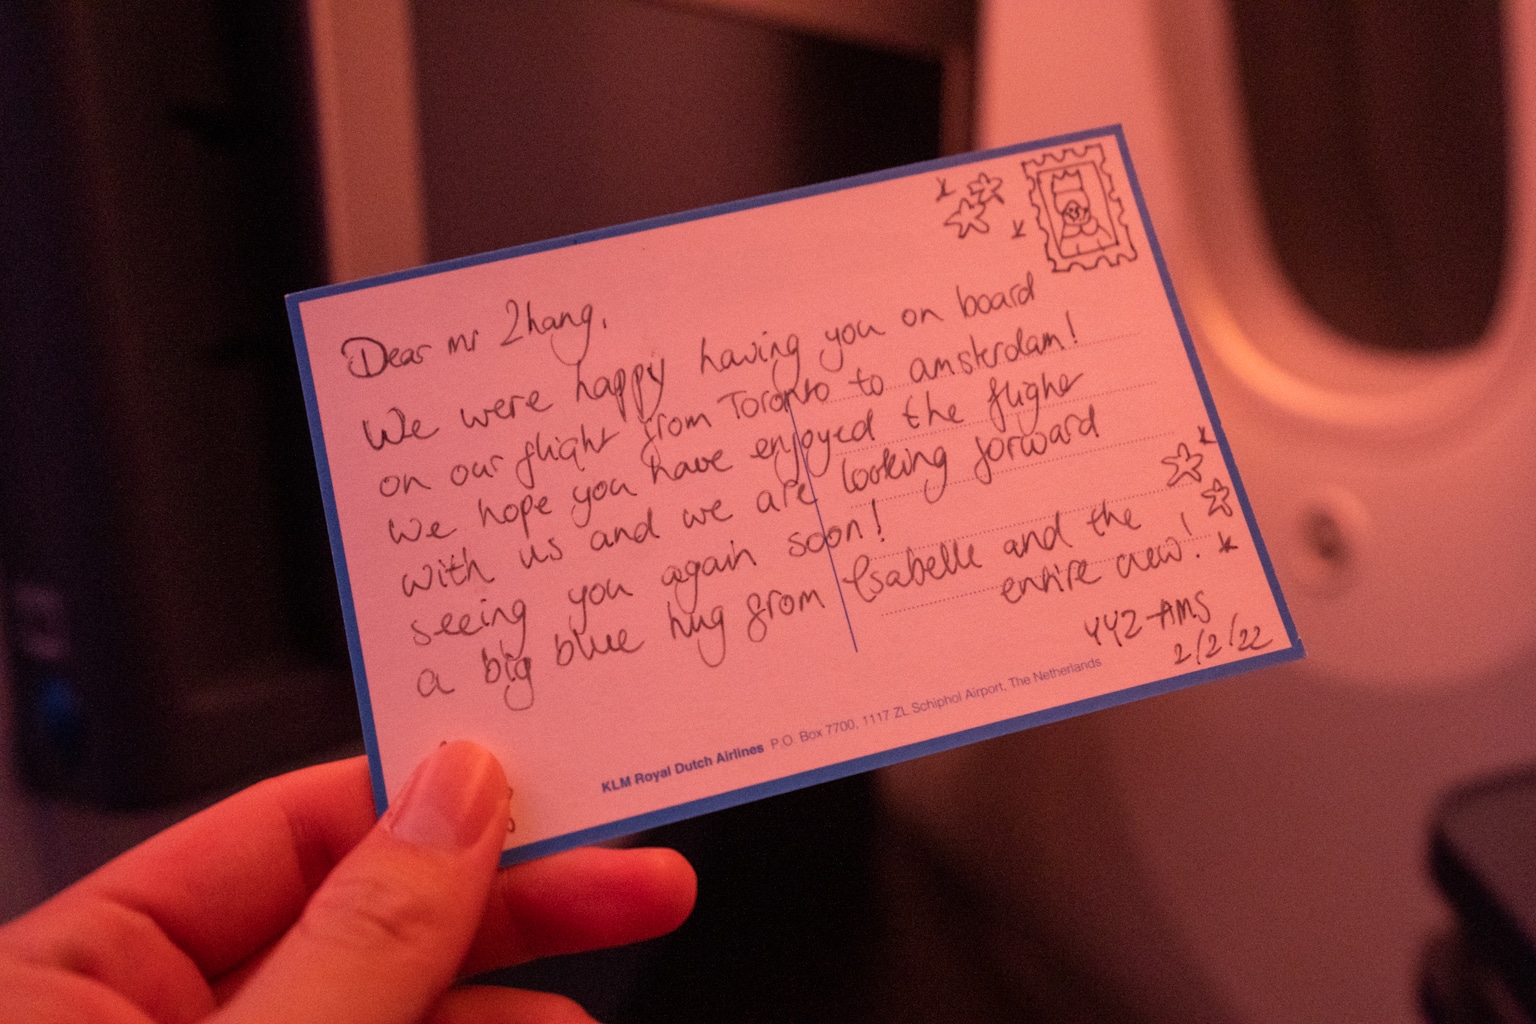 Dear mr Zhang,
We were happy having you on board
on our flight from Toronto to amsterdam!
We hope you have enjoyed the flight
with us and we are looking forward
seeing you again soon!
a big blue hug from Isabelle and the
entire crew!
YYZ-AMS
2/2/22
KLM Royal Dutch Airlines P.O. Box 7700, 1117 ZL Schiphol Airport, The Netherlands